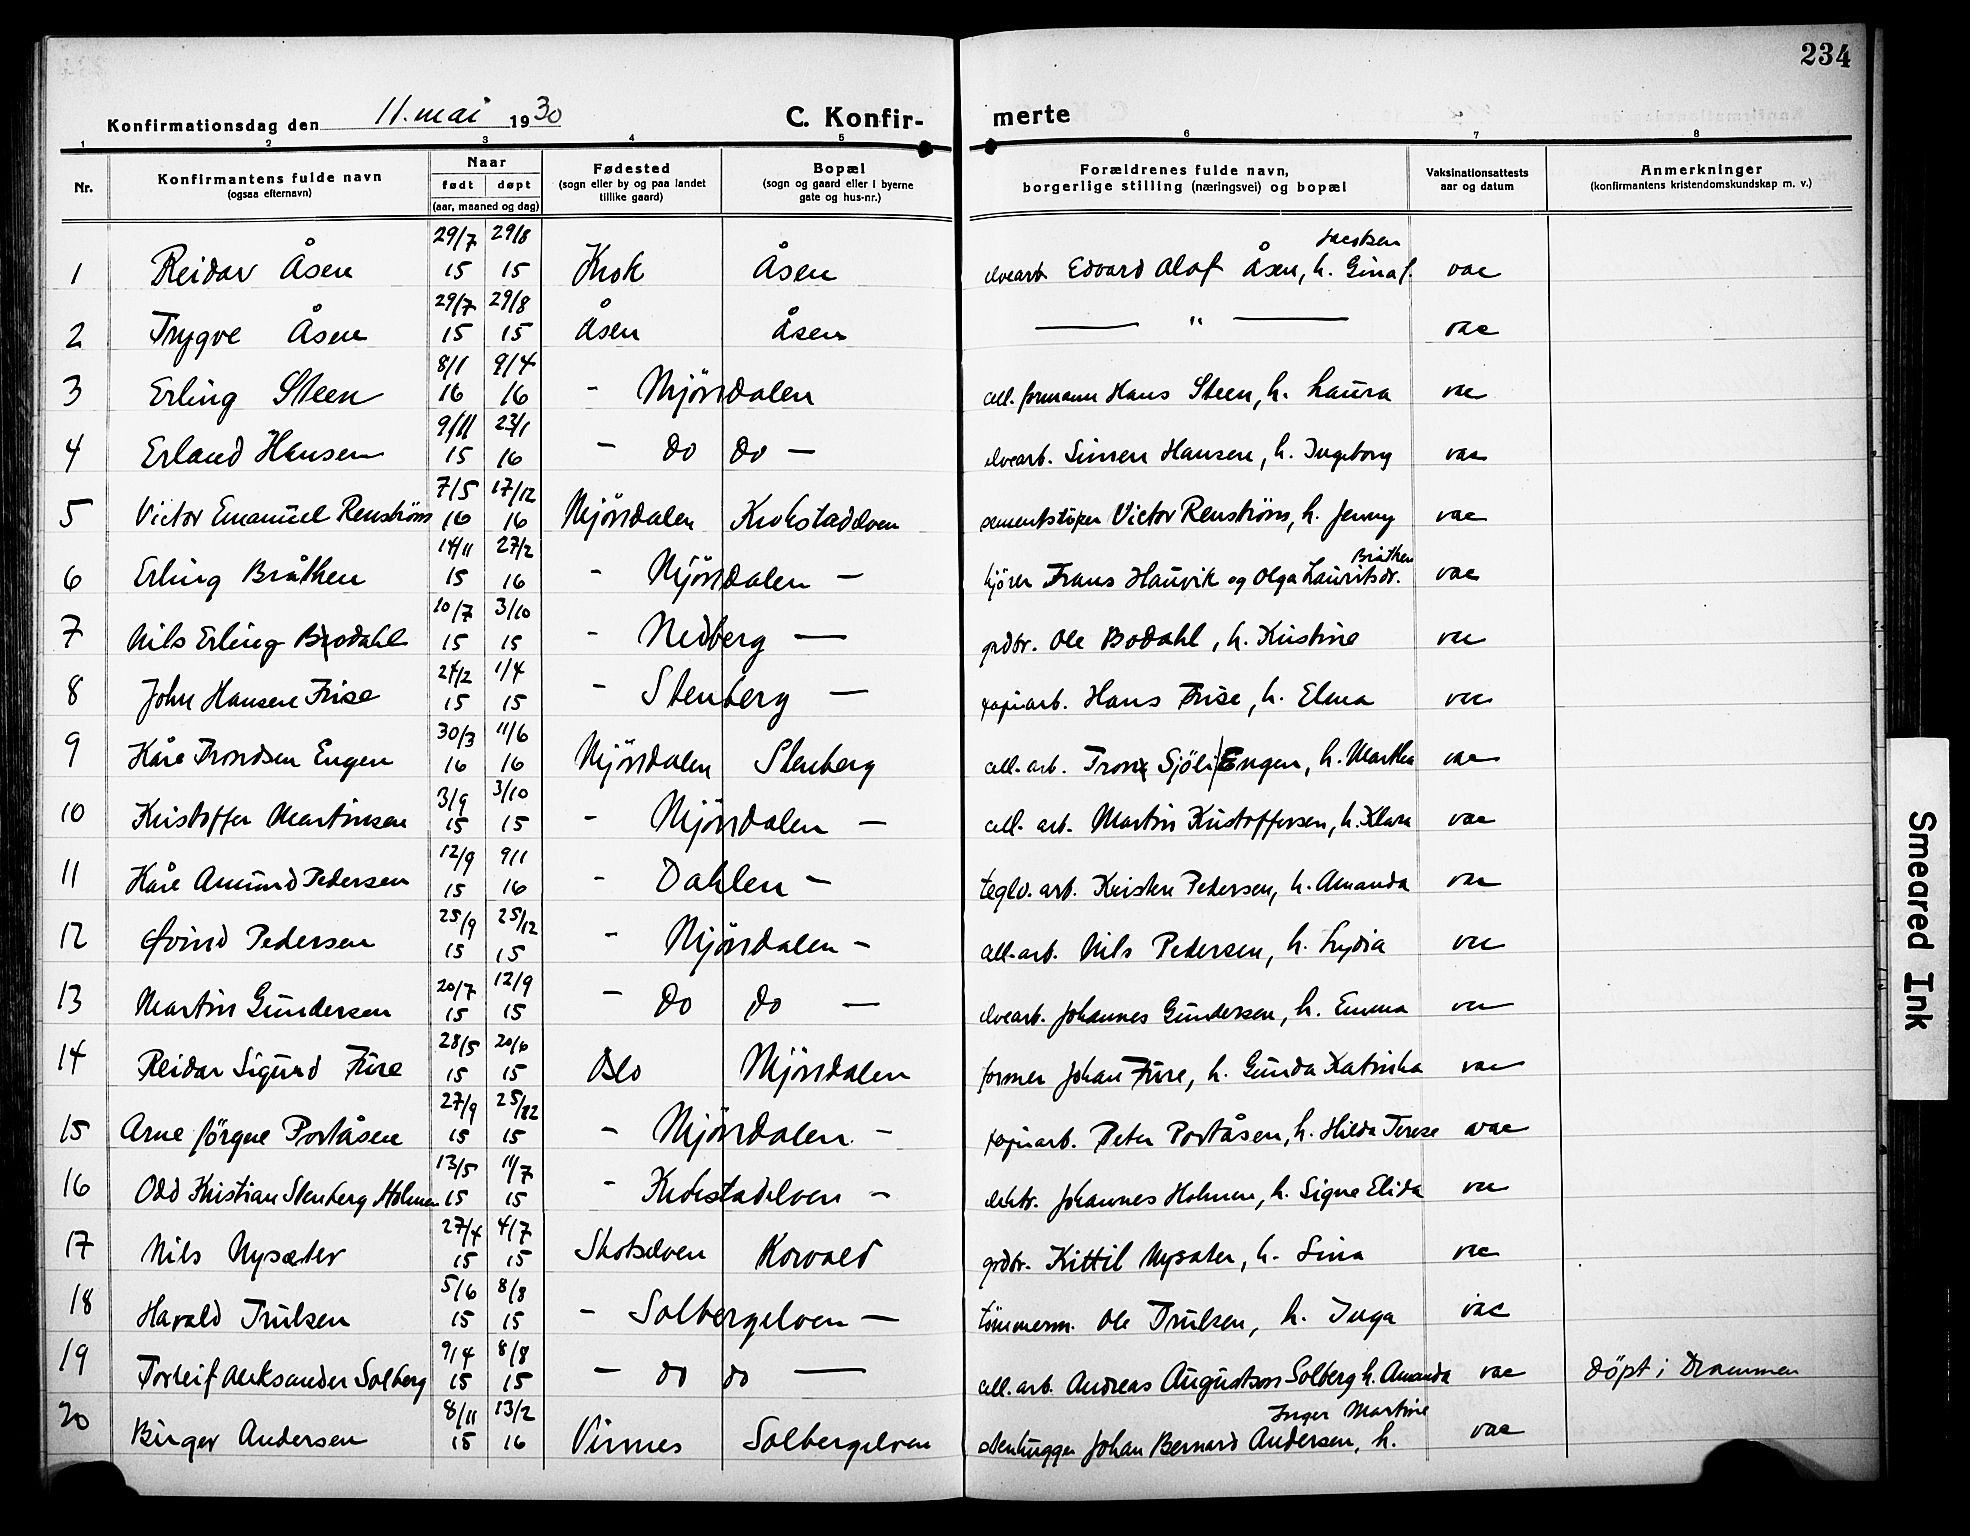 234
Konfirmationsdag den 11. mai 1930 C. Konfirmerte
1 2 3 4 5 6 7 8
Nr. Konfirmantens fulde navn (ogsaa efternavn) Naar født døpt (aar, maaned og dag) Fødested (sogn eller by og paa landet tillike gaard) Bopæl (sogn og gaard eller i byerne gate og hus-nr.) Forældrenes fulde navn, borgerlige stilling (næringsvei) og bopæl Vaksinationsattests aar og datum Anmerkninger (konfirmantens kristendomskundskap m. v.)
1 Reidar Åsen 29/7 15 29/8 15 Krok Åsen elvearb. Edvard Olaf Åsen, h. Gina f. Jacobsen vac
2 Trygve Åsen 29/7 15 29/8 15 Åsen Åsen — " — vac
3 Erling Steen 8/1 16 9/4 16 - Mjöndalen cell. formann Hans Steen, h. Laura vac
4 Erland Hansen 9/11 15 23/1 16 - do do - elvearb. Simen Hansen, h. Ingeborg vac
5 Victor Emanuel Renström 7/5 16 17/12 16 Mjöndalen Krokstadelven sementstöper Victor Renström, h. Jenny vac
6 Erling Bråthen 14/11 15 27/2 16 - Mjöndalen - kjörer Frans Hauvik og Olga Lauritsdr. Bråthen vac
7 Nils Erling Bodahl 10/7 15 3/10 15 - Nedberg - grdbr. Ole Bodahl, h. Kristine vac
8 John Hansen Frise 24/2 15 1/4 15 - Stenberg - papirarb. Hans Frise, h. Elena vac
9 Kåre Trondsen Engen 30/3 16 11/6 16 Mjöndalen Stenberg cell. arb. Trond Sjöli Engen, h. Martha vac
10 Kristoffer Martinsen 3/9 15 3/10 15 - Mjöndalen - cell. arb. Martin Kristoffersen, h. Klara vac
11 Kåre Amund Pedersen 12/9 15 9/1 16 - Dahlen - teglv. arb. Kristen Pedersen, h. Amanda vac
12 Øvind Pedersen 25/9 15 25/12 15 - Mjöndalen - cell. arb. Nils Pedersen, h. Lydia vac
13 Martin Gundersen 20/7 15 12/9 15 - do do - elvearb. Johannes Gundersen, h. Emma vac
14 Reidar Sigurd Fure 28/5 15 20/6 15 Oslo Mjöndalen former Johan Fure, h. Gunda Katinka vac
15 Arne Jörgne Portåsen 27/9 15 25/12 15 - Mjöndalen - papirarb. Peter Portåsen, h. Hilda Terese vac
16 Odd Kristian Stenberg Holmen 13/5 15 11/7 15 - Krokstadelven - elektr. Johannes Holmen, h. Signe Elida vac
17 Nils Nysæter 27/4 15 4/7 15 Skotselven Korvald grdbr. Kittil Nysæter, h. Lina vac
18 Harald Trulsen 5/6 15 8/8 15 - Solbergelven - tömmerm. Ole Trulsen, h. Inga vac
19 Torleif Aleksander Solberg 9/4 15 8/8 15 - do do - cell. arb. Andreas Augustson Solberg h. Amanda vac Döpt i Drammen
20 Birger Andersen 8/11 15 13/2 16 Virnes Solbergelven stenhugger Johan Bernard Andersen, h. Inger Martine vac
Smeared Ink